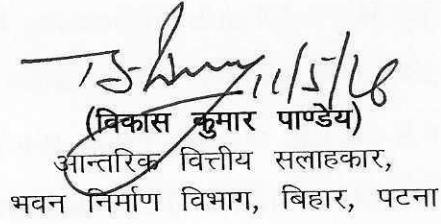 11/5/26
(विकास कुमार पाण्डेय)
आन्तरिक वित्तीय सलाहकार,
भवन निर्माण विभाग, बिहार, पटना